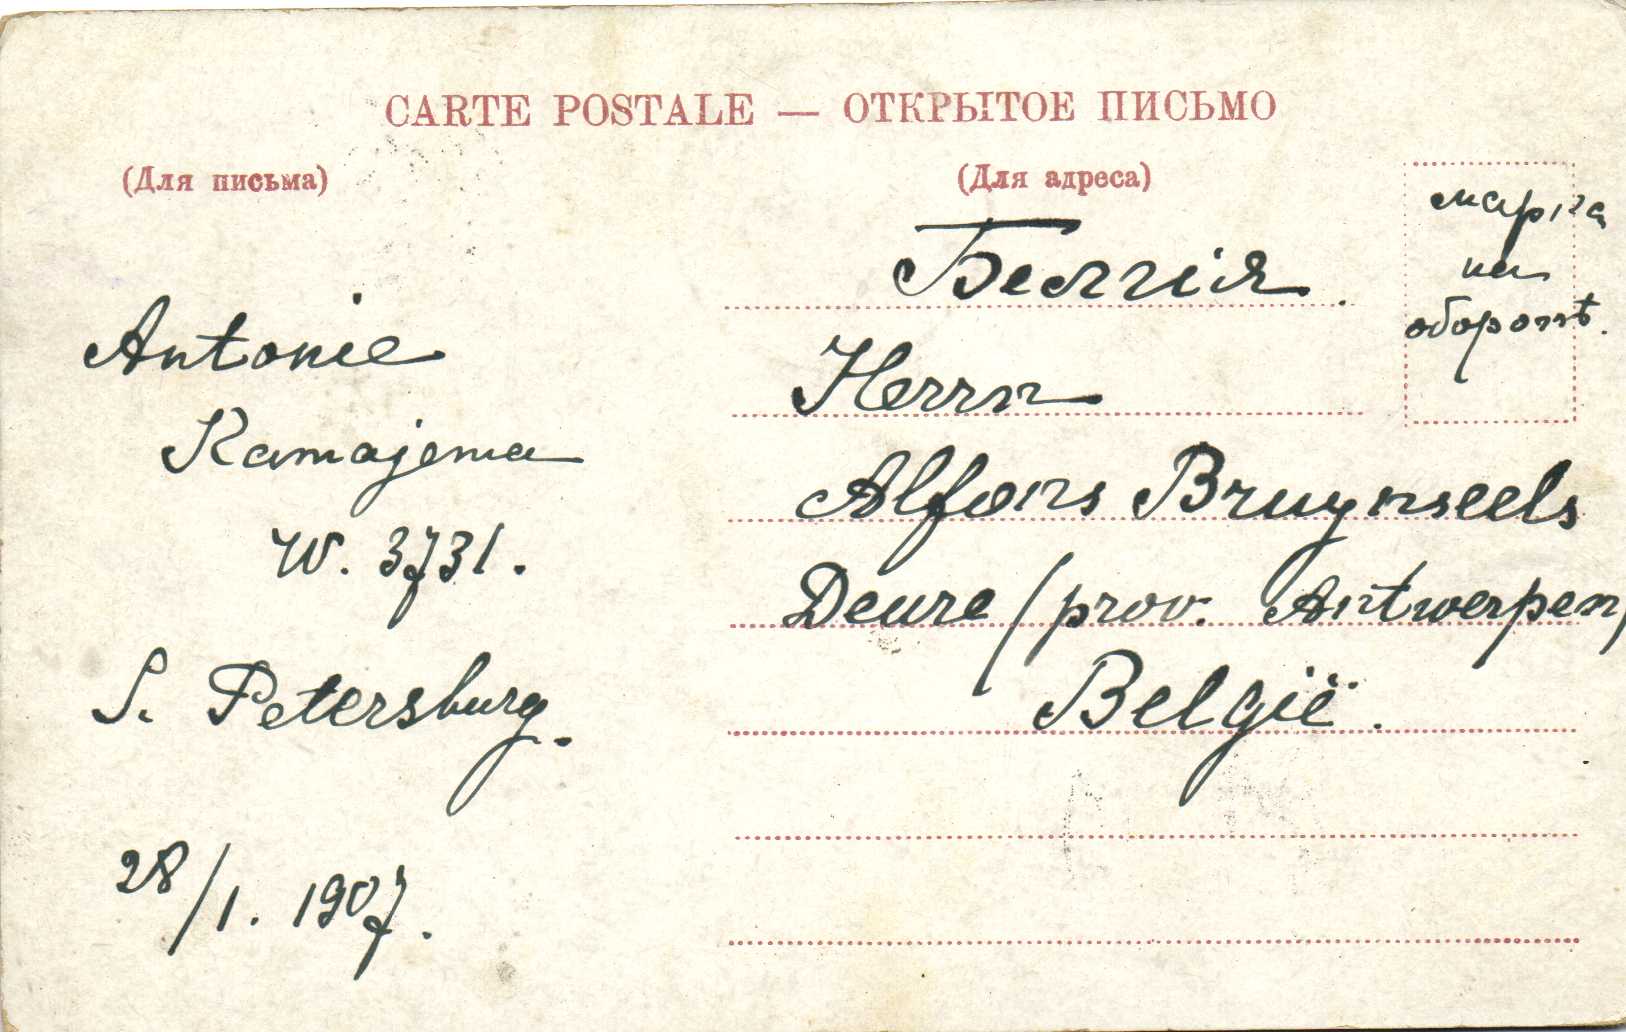 CARTE POSTALE — ОТКРЫТОЕ ПИСЬМО
(Для письма)
Antonie
Kamajema
W. 3731.
S. Petersburg.
28/1. 1907.
(Для адреса)
марка
на
оборотѣ.
Белгія.
Herrn
Alfons Bruynseels
Deurne / prov. Antwerpen/
België.